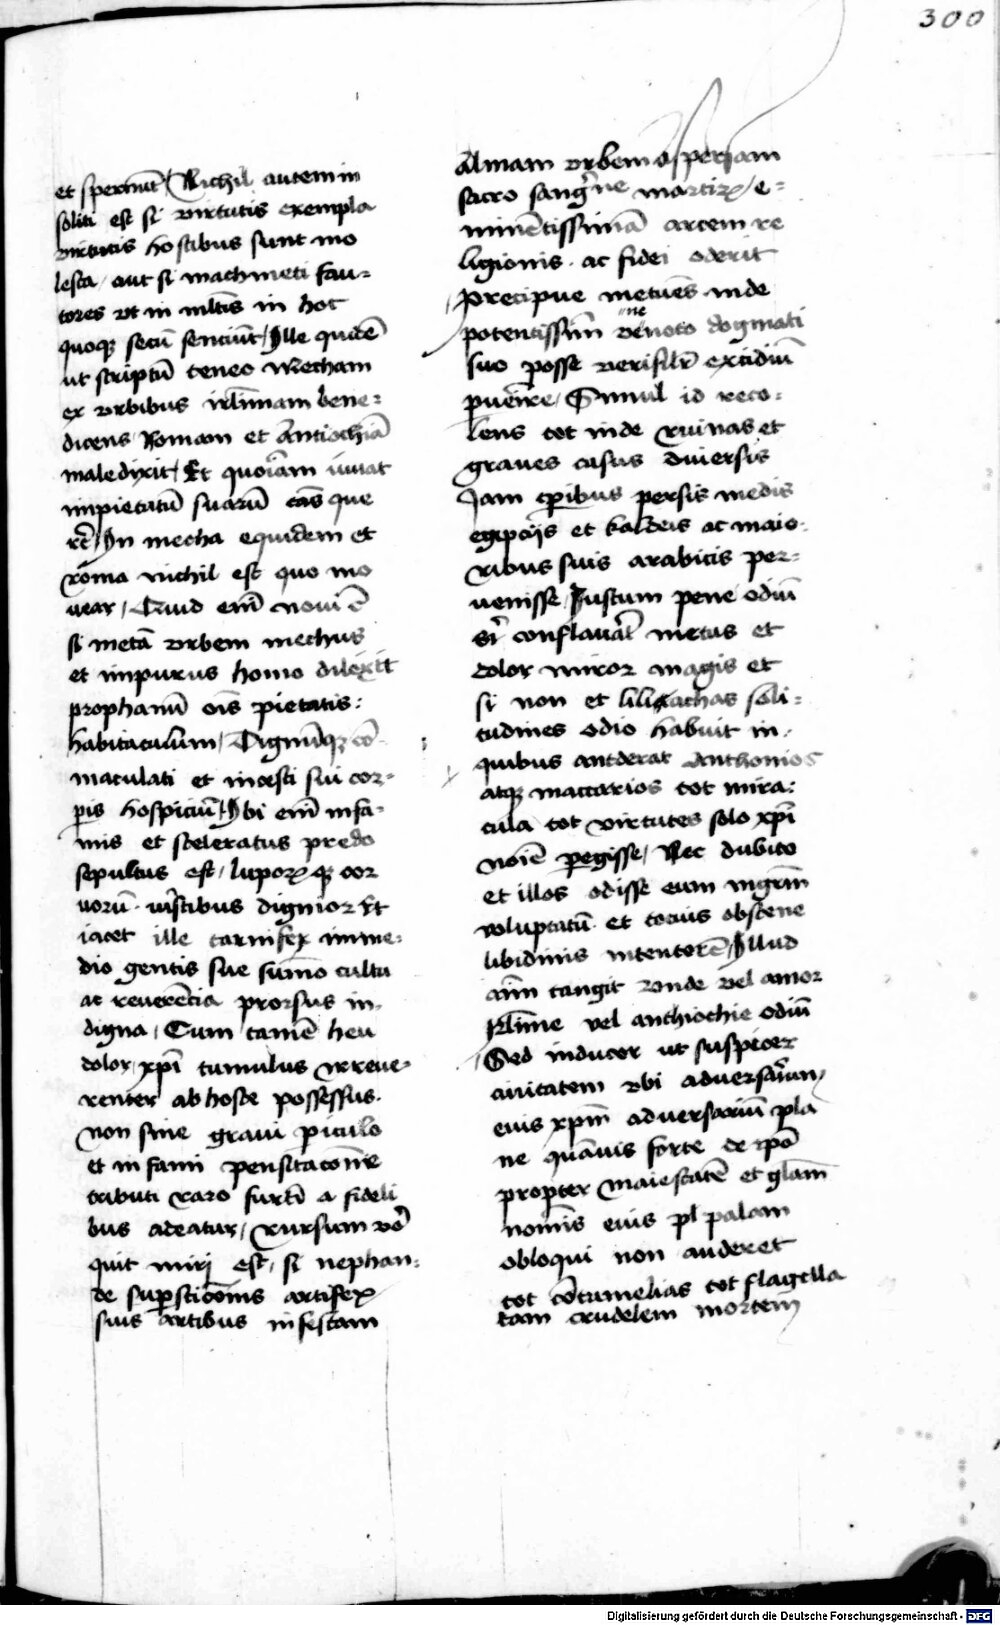 300
et spernūt / Nichil autem in
soliti est si virtutis exempla
virtutis hostibus sunt mo
lesta / aut si machmeti fau-
tores vt in mltis in hoc
quoqꝫ secū senciūt / Ille quidē
ut scriptū teneo Mecham
ex vrbibus irlimam bene-
dicens Romam et Antiochiā
maledixit / Et quoniam iuuat
impietatū suarū cās que
rē / In mecha equidem et
roma nichil est quo mo
uear / Quid em̄ noui ē
si metā vrbem mechus
et impurus homo dilexit
prophanū oīs pietatis:
habitaculum / Dignūqꝫ cō-
maculati et incesti sui cor-
pis hospiciū / Vbi em̄ infa-
mis et sceleratus predo
sepultus est / luporꝝ qꝫ cor
uorū vīscibus dignior Et
iacet ille carnifex in me-
dio gentis sue summo cultu
ac reuerēcia prorsus in-
digna / Cum tamē heu
dolor xp̄i tumulus irreue-
renter ab hoste possessus.
non sine graui piculo
et infami pensitacōne
tributi raro furtī a fideli
bus adeatur / rursum vō
quit miri est / si nephan-
de supsticōnis artifex
suis artibus infestam
Almam vrbem asperiam
sacro sangīne martirꝝ / e-
minētissimā arcem re
ligionis ac fidei oderit
precipue metuēs inde
ne
potentissim̄ venoto dogmati
suo posse verisilr̄ excidiū
puenīre / Simul id reco-
lens tot inde ruinas et
graues casus diuersis
Iam tꝑibus persis medis
egipcijs et kaldeis ac maio-
ribus suis arabicis per-
uenisse / Iustum pene odiū
si conflauāt metus et
dolor miror magis et
si non et lilirachas soli-
tudines odio habuit in
quibus antderat Anthonios
atqꝫ maccarios tot mira:
cula tot virtutes solo xp̄i
noīe pegisse / Nec dubito
et illos odisse eum nigrm̄
voluptatū et tocius obscene
libidinis intentorē / Illud
aīm tangit vnde vel amor
Rlīme vel anthiochie odiū
Sed inducor ut suspicer
ciuitatem vbi aduersarium
eius xpm̄ aduersariū pla
ne quāuis forte de ip̄o
propter maiestatē et glam̄
nomis eius pl palam
obloqui non auderet
tot cōtumelias tot flagella
tam crudelem mortem
Digitalisierung gefördert durch die Deutsche Forschungsgemeinschaft - DFG